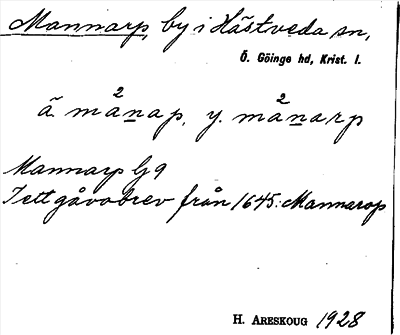 Mannarp, by i Hästveda sn,
Ö. Göinge hd, Krist. l.
ä. må2nap, y. må2narp
Mannarp Gj 9
I ett gåvobrev från 1645: Mannarop
H. Areskoug 1928